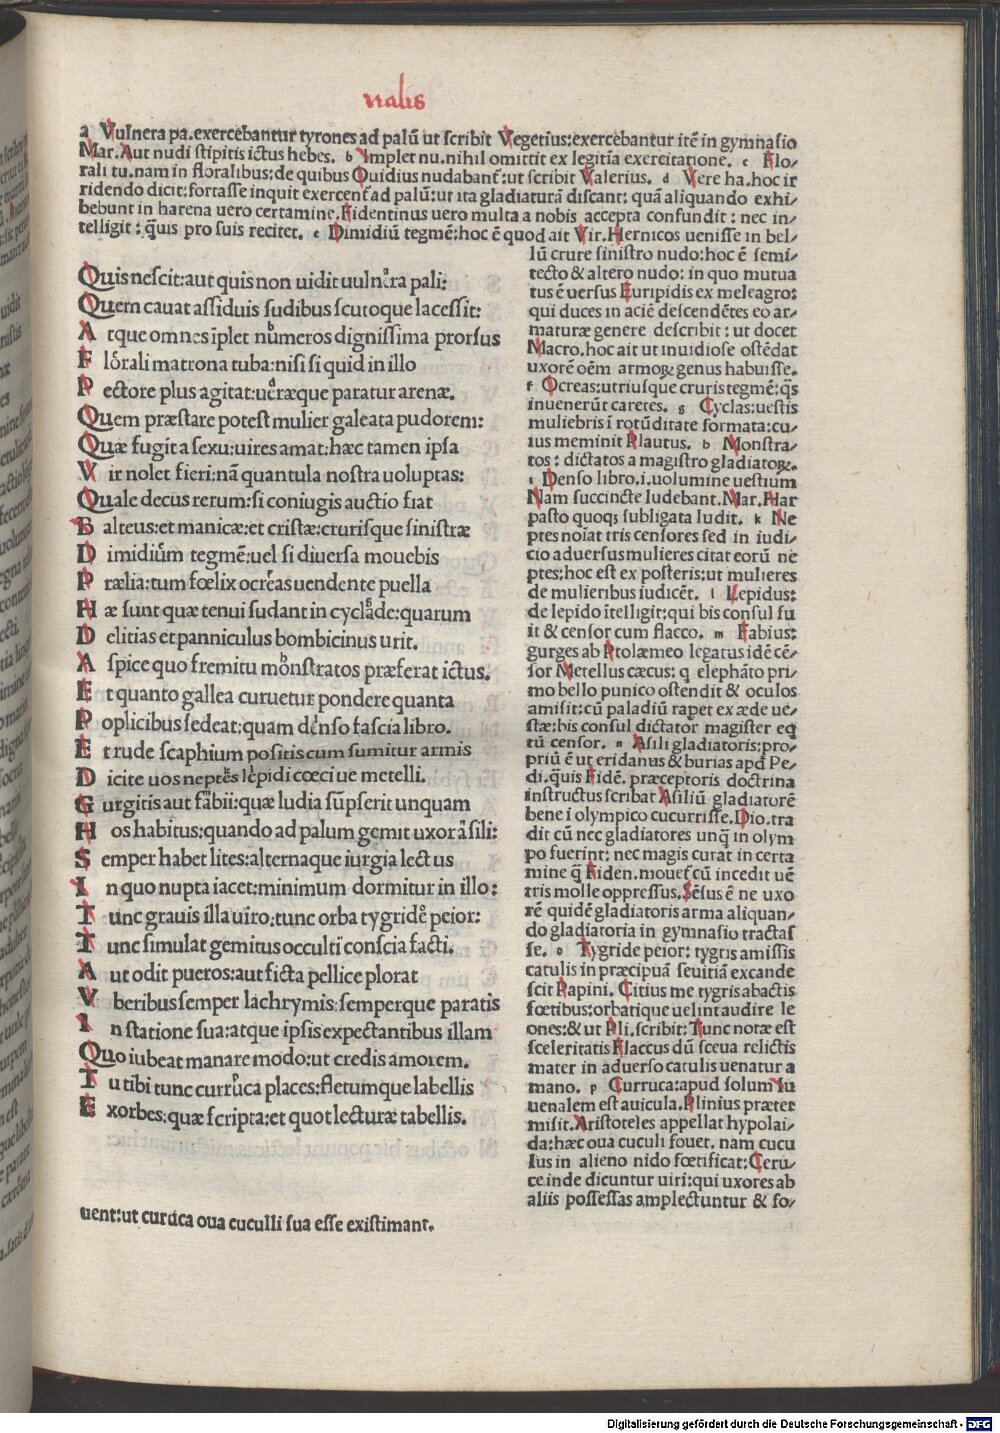 ualis
a Vulnera pa.exercebantur tyrones ad palū ut scribit Vegetius:exercebantur itē in gymnasio
Mar.Aut nudi stipitis ictus hebes. b Implet nu.nihil omittit ex legitīa exercitatione. c Flo/
rali tu.nam in floralibus:de quibus Ouidius nudabant̄:ut scribit Valerius. d Vere ha.hoc ir
ridendo dicit:fortasse inquit exercent̄ ad palū:ut ita gladiaturā discant: quā aliquando exhi/
bebunt in harena uero certamine.Fidentinus uero multa a nobis accepta confundit : nec in/
telligit : q̄uis pro suis recitet. e Dimidiū tegmē:hoc ē quod ait Vir.Hernicos uenisse in bel/
Quis nescit:aut quis non uidit uulnera pali:
Quem cauat assiduis sudibus scutoque lacessit:
A tque omnes īplet numeros dignissima prorsus
F lorali matrona tuba:nisi si quid in illo
P ectore plus agitat:ueræque paratur arenæ.
Quem præstare potest mulier galeata pudorem:
Quæ fugit a sexu:uires amat:hæc tamen ipsa
V ir nolet fieri:nā quantula nostra uoluptas:
Quale decus rerum:si coniugis auctio fiat
B alteus:et manicæ:et cristæ:crurisque sinistræ
D imidium tegmē:uel si diuersa mouebis
P rælia:tum fœlix ocreas uendente puella
H æ sunt quæ tenui sudant in cyclade:quarum
D elitias et panniculus bombicinus urit.
A spice quo fremitu monstratos præferat ictus.
E t quanto galleæ curuetur pondere quanta
P oplicibus sedeat:quam denso fascia libro.
E t rude scaphium positis cum sumitur armis
D icite uos neptes lepidi cœci ue metelli.
G urgitis aut fabii:quæ ludia sūpserit unquam
H os habitus:quando ad palum gemit uxor asili:
S emper habet lites:alternaque iurgia lectus
I n quo nupta iacet:minimum dormitur in illo:
T unc grauis illa uiro:tunc orba tygride peior:
T unc simulat gemitus occulti conscia facti.
A ut odit pueros:aut ficta pellice plorat
V beribus semper lachrymis:semperque paratis
I n statione sua:atque ipsis expectantibus illam
Quo iubeat manare modo:ut credis amorem.
T u tibi tunc curruca places:fletumque labellis
E xorbes:quæ scripta:et quot lecturæ tabellis.
lū crure sinistro nudo:hoc ē semi/
tecto & altero nudo: in quo mutua
tus ē uersus Euripidis ex meleagro:
qui duces in aciē descendētes eo ar/
maturæ genere describit : ut docet
Macro.hoc ait ut inuidiose ostēdat
uxorē oēm armoꝝ genus habuisse.
f Ocreas:utriusque cruris tegmē:q̄s
inuenerūt caretes. g Cyclas:uestis
muliebris ī rotūditate formata:cu/
ius meminit Plautus. h Monstra/
tos : dictatos a magistro gladiatoꝝ.
i Denso libro.i.uolumine uestium
Nam succincte ludebant.Mar.Har
pasto quoqꝫ subligata ludit. k Ne
ptes noīat tris censores sed in iudi/
cio aduersus mulieres citat eorū ne
ptes:hoc est ex posteris:ut mulieres
de mulieribus iudicēt. l Lepidus:
de lepido ītelligit:qui bis consul fu
it & censor cum flacco. m Fabius:
gurges ab Ptolæmeo legatus idē cē/
sor Metellus cæcus: q elephāto pri/
mo bello punico ostendit & oculos
amisit:cū paladiū rapet ex æde ue/
stæ:bis consul dictator magister eq
tū censor. n Asili gladiatoris:pro/
priū ē ut eridanus & burias apd Pe/
di.q̄uis Fidē. præceptoris doctrina
instructus scribat Asiliū gladiatorē
bene i olympico cucurrisse.Dio.tra
dit cū nec gladiatores unq̄ in olym
po fuerint: nec magis curat in certa
mine q̄ Fiden.mouet̄ cū incedit uē
tris molle oppressus.Sēsus ē ne uxo
rē quidē gladiatoris arma aliquan/
do gladiatoria in gymnasio tractas
se. o Tygride peior: tygris amissis
catulis in præcipuā seuitiā excande
scit Papini. Citius me tygris abactis
fœtibus:orbatique uelint audire le
ones:& ut Pli.scribit:Tunc notæ est
sceleritatis Flaccus dū sceua relictis
mater in aduerso catulis uenatur a
mano. p Curruca:apud solum Iu
uenalem est auicula.Plinius præter
misit.Aristoteles appellat hypolai/
da:hæc oua cuculi fouet. nam cucu
lus in alieno nido fœtificat:Ceru/
ce inde dicuntur uiri:qui uxores ab
aliis possessas amplectuntur & fo/
uent:ut curuca oua cuculli sua esse existimant.
Digitalisierung gefördert durch die Deutsche Forschungsgemeinschaft - DFG